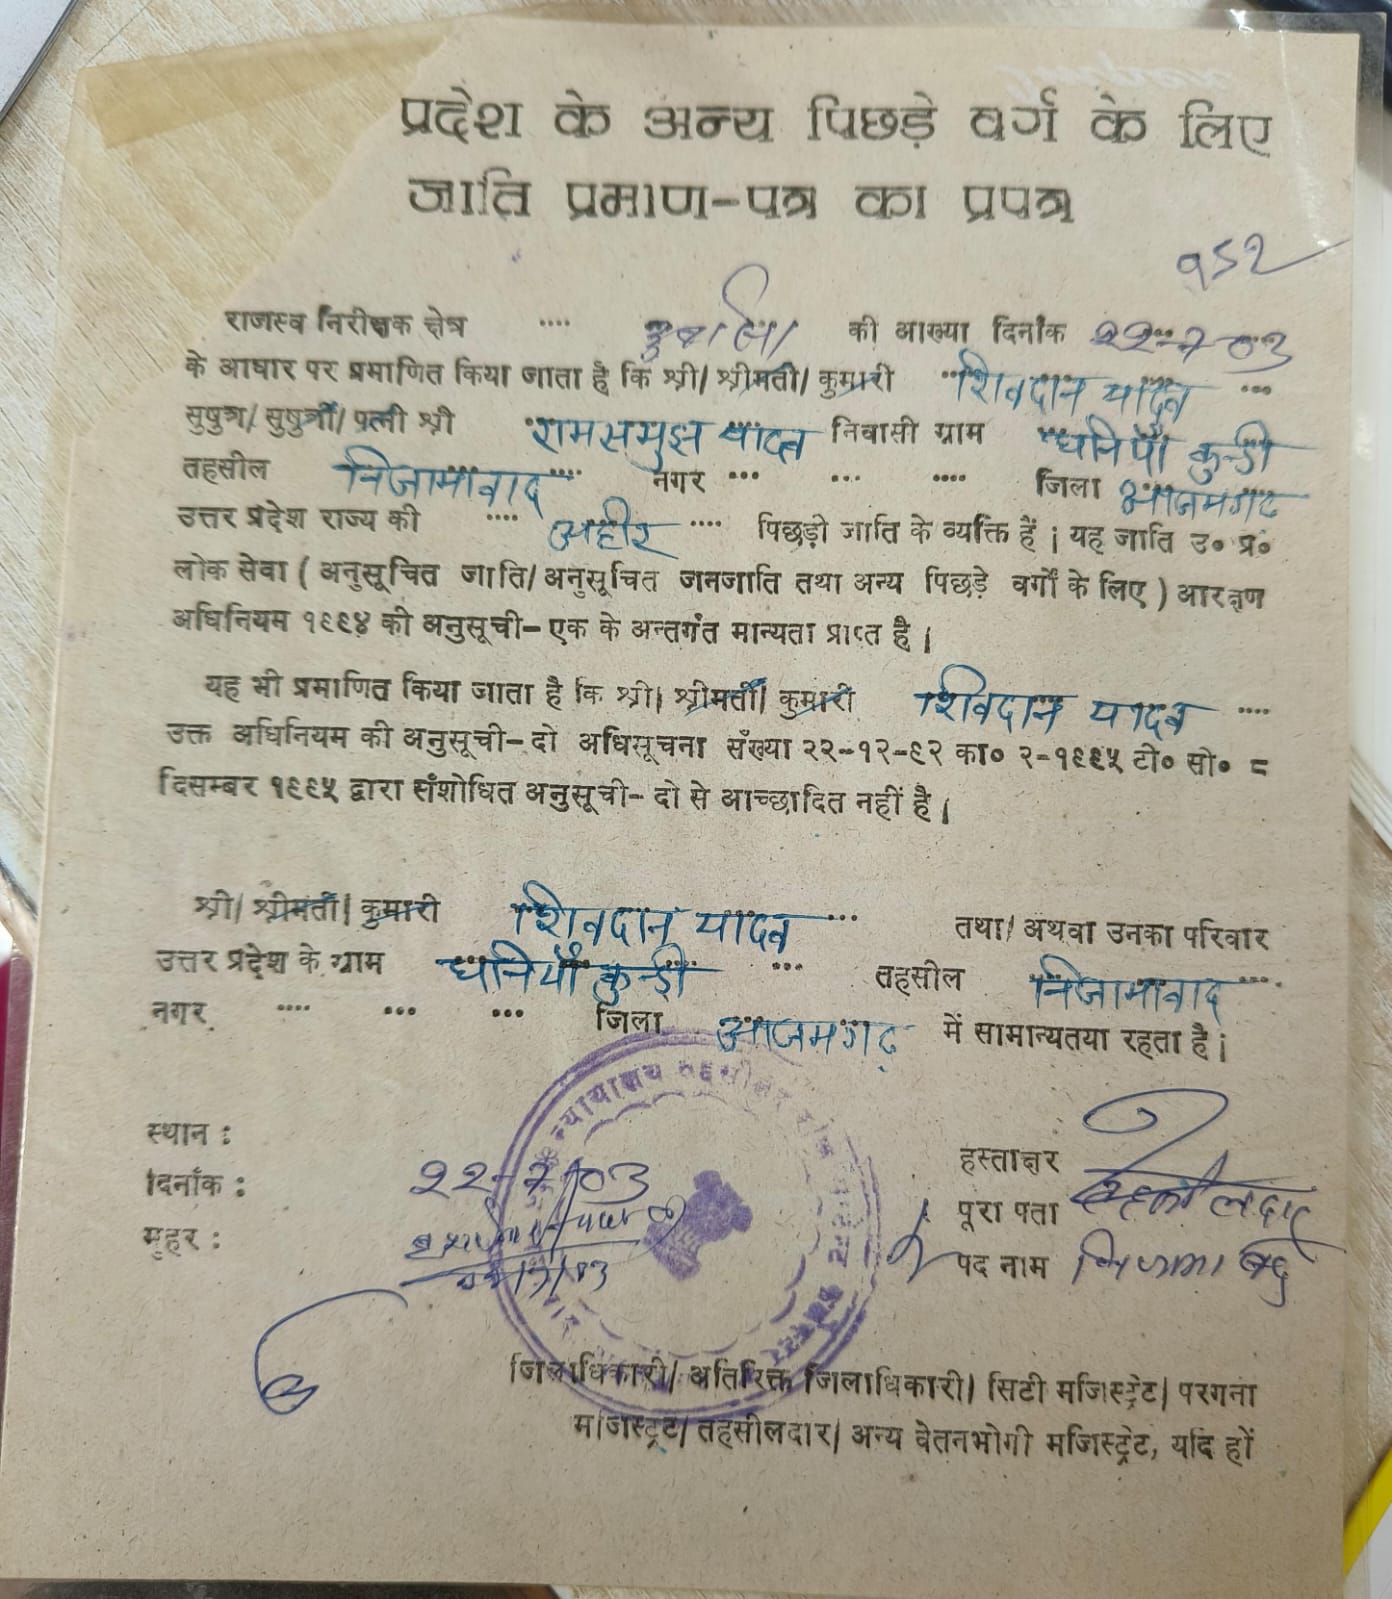 प्रदेश के अन्य पिछड़े वर्ग के लिए
जाति प्रमाण-पत्र का प्रपत्र
१५२
राजस्व निरीक्षक क्षेत्र .... की आख्या दिनाँक २२-७-०३
के आधार पर प्रमाणित किया जाता है कि श्री/ श्रीमती/ कुमारी शिवदान यादव ...
सुपुत्र/ सुपुत्री/ पत्नी श्री रामसमुझ यादव निवासी ग्राम धनियाँ कुन्डी
तहसील निजामाबाद .... नगर ... ... .... जिला आजमगढ
उत्तर प्रदेश राज्य की .... अहीर .... पिछड़ी जाति के व्यक्ति हैं । यह जाति उ॰ प्र॰
लोक सेवा ( अनुसूचित जाति/ अनुसूचित जनजाति तथा अन्य पिछड़े वर्गों के लिए ) आरक्षण
अधिनियम १९९४ की अनुसूची- एक के अन्तर्गत मान्यता प्राप्त है ।
यह भी प्रमाणित किया जाता है कि श्री/ श्रीमती/ कुमारी शिवदान यादव ....
उक्त अधिनियम की अनुसूची- दो अधिसूचना सँख्या २२-१२-९२ का॰ २-१९९५ टी॰ सी॰ ८
दिसम्बर १९९५ द्वारा सँशोधित अनुसूची- दो से आच्छादित नहीं है ।
श्री/ श्रीमती/ कुमारी शिवदान यादव ... तथा/ अथवा उनका परिवार
उत्तर प्रदेश के ग्राम धनियाँ कुन्डी ... तहसील निजामाबाद ....
नगर .... ... ... जिला आजमगढ में सामान्यतया रहता है ।
न्यायालय तहसीलदार
स्थान :
दिनाँक : २२-७-०३
मुहर :
हस्ताक्षर
पूरा पता तहसीलदार
पद नाम निजामाबाद
जिलाधिकारी/ अतिरिक्त जिलाधिकारी/ सिटी मजिस्ट्रेट/ परगना
मजिस्ट्रेट/ तहसीलदार/ अन्य वेतनभोगी मजिस्ट्रेट, यदि हों